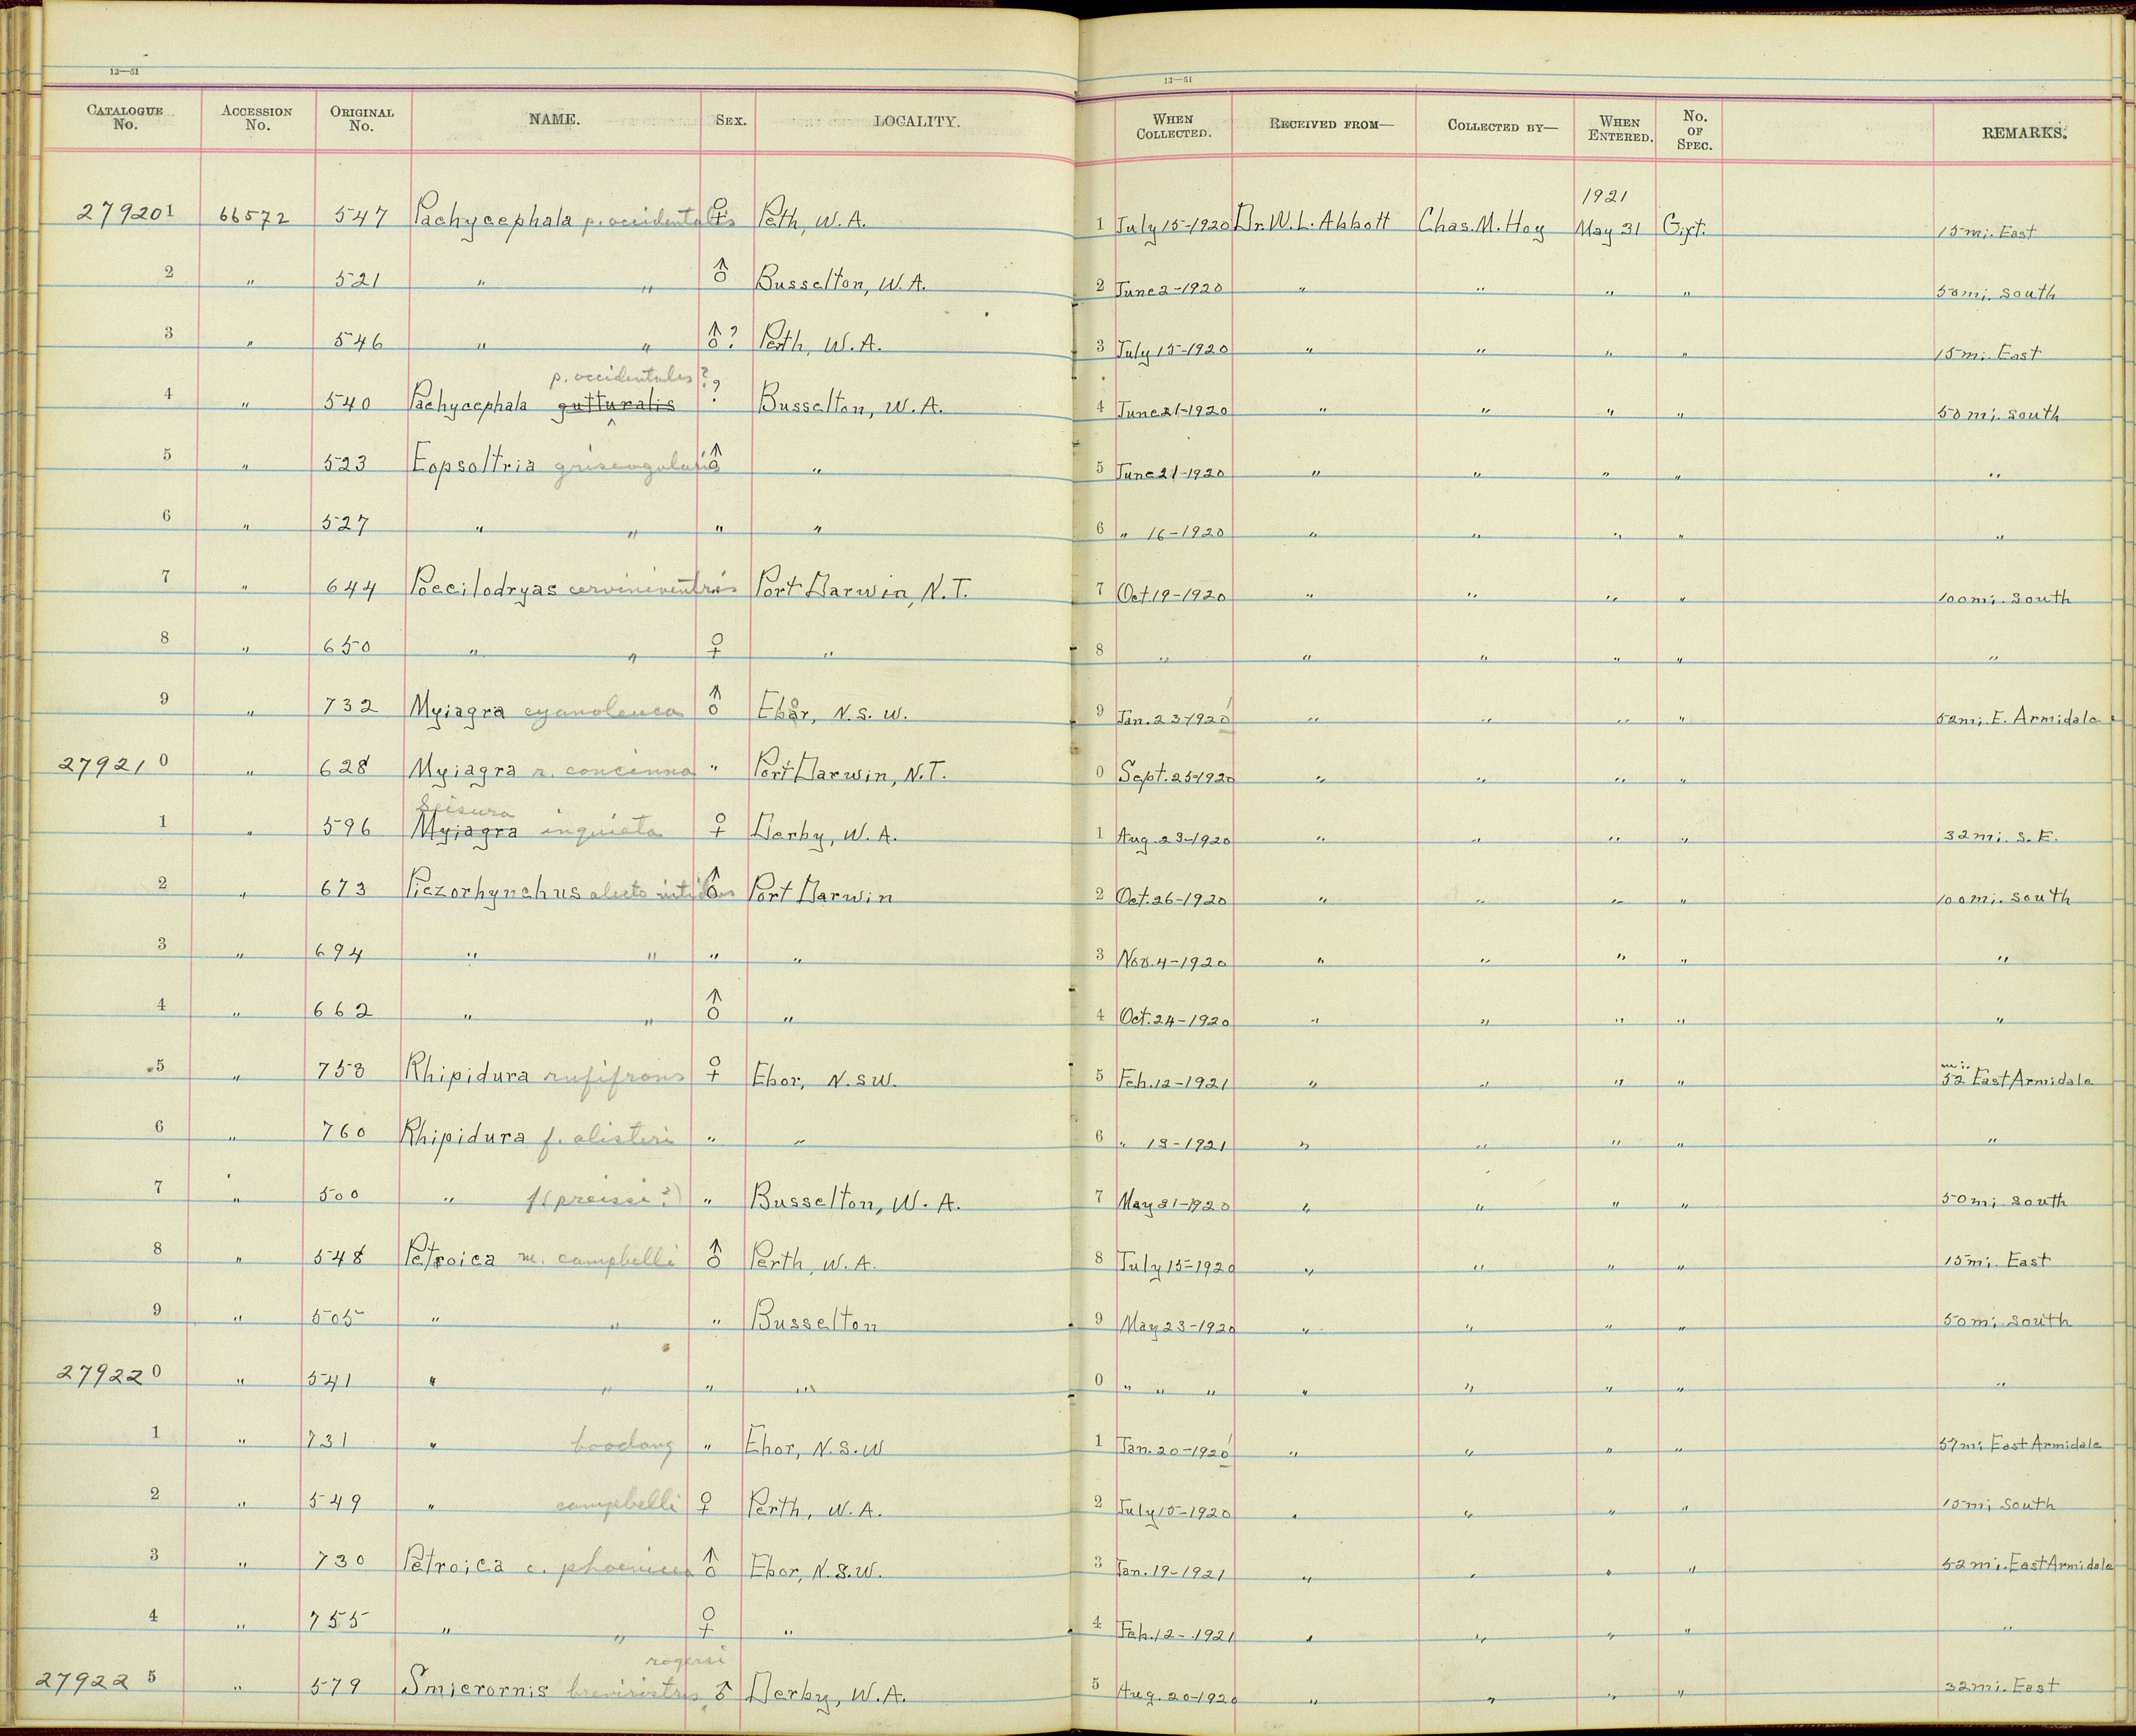 13—51
13—51
CATALOGUE No. ACCESSION No. ORIGINAL No. NAME. SEX. LOCALITY. WHEN COLLECTED. RECEIVED FROM— COLLECTED BY— WHEN ENTERED. No. OF SPEC. REMARKS.
1921
279201 66572 547 Pachycephala p. occidentalis ♀ Peth, W. A. 1 July 15-1920 Dr. W. L. Abbott Chas. M. Hoy May 31 Gift. 15 mi. East
2 " 521 " " ♂ Busselton, W. A. 2 June 2-1920 " " " " 50 mi. South
3 " 546 " " ♂? Perth, W. A. 3 July 15-1920 " " " " 15 mi. East
p. occidentales ?
4 " 540 Pachycephala gutturalis ? Busselton, W. A. 4 June 21-1920 " " " " 50 mi. South
5 " 523 Eopsoltria griseogularis ♂ " 5 June 21-1920 " " " " "
6 " 527 " " " " 6 " 16-1920 " " " " "
7 " 644 Poecilodryas cerviniventris Port Darwin, N. T. 7 Oct 19-1920 " " " " 100 mi. South
8 " 650 " " ♀ " 8 " " " " " "
9 " 732 Myiagra cyanoleuca ♂ Ebor, N. S. W. 9 Jan. 23-1920 1 " " " " 52 mi. E. Armidale
279210 " 628 Myiagra r. concinna " Port Darwin, N. T. 0 Sept. 25-1920 " " " "
Seisura
1 " 596 Myiagra inquieta ♀ Derby, W. A. 1 Aug. 23-1920 " " " " 32 mi. S. E.
2 " 673 Piezorhynchus alecto nitidus ♂ Port Darwin 2 Oct. 26-1920 " " " " 100 mi. South
3 " 694 " " " " 3 Nov. 4-1920 " " " " "
4 " 662 " " ♂ " 4 Oct. 24-1920 " " " " "
mi.
5 " 753 Rhipidura rufifrons ♀ Ebor, N. S W. 5 Feb. 12-1921 " " " " 52 East Armidale
6 " 760 Rhipidura f. alisteri " " 6 " 13-1921 " " " " "
7 " 500 " f (preissi ?) " Busselton, W. A. 7 May 21-1920 " " " " 50 mi. South
8 " 548 Petroica m. campbelli ♂ Perth, W. A. 8 July 15-1920 " " " " 15 mi. East
9 " 505 " " " Busselton 9 May 23-1920 " " " " 50 mi. South
279220 " 541 " " " " 0 " " " " " " " "
1 " 731 " boodang " Ebor, N. S. W 1 Jan. 20-1920 1 " " " " 57 mi East Armidale
2 " 549 " campbelli ♀ Perth, W. A. 2 July 15-1920 " " " " 15 mi South
3 " 730 Petroica c. phoenicea ♂ Ebor, N. S. W. 3 Jan. 19-1921 " " " " 52 mi. East Armidale
4 " 755 " " ♀ " 4 Feb. 12-1921 " " " " "
rogersi
279225 " 579 Smicrornis brevirostris ♂ Derby, W. A. 5 Aug. 20-1920 " " " " 32 mi. East